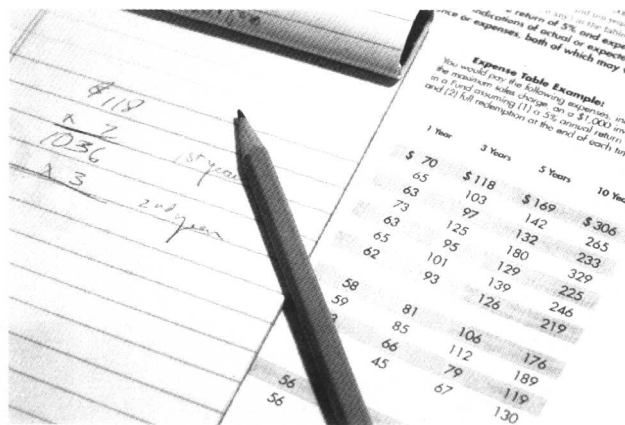 $118
x 7
1036
1st year
x 3
2nd year
return of 5% and
indications of actual or
or expenses, both of which may
Expense Table Example:
You would pay the following expenses,
the maximum sales charge, on a $1,000
in a Fund assuming (1) a 5% annual return
and (2) full redemption at the end of each
1 Year 3 Years 5 Years 10
$ 70 $118 $169 $306
65 103 142 265
63 97 132 233
73 125 180 329
63 95 129 225
65 101 139 246
62 93 126 219
58 81 106 176
59 85 112 189
66 79 119
56 45 67 130
56